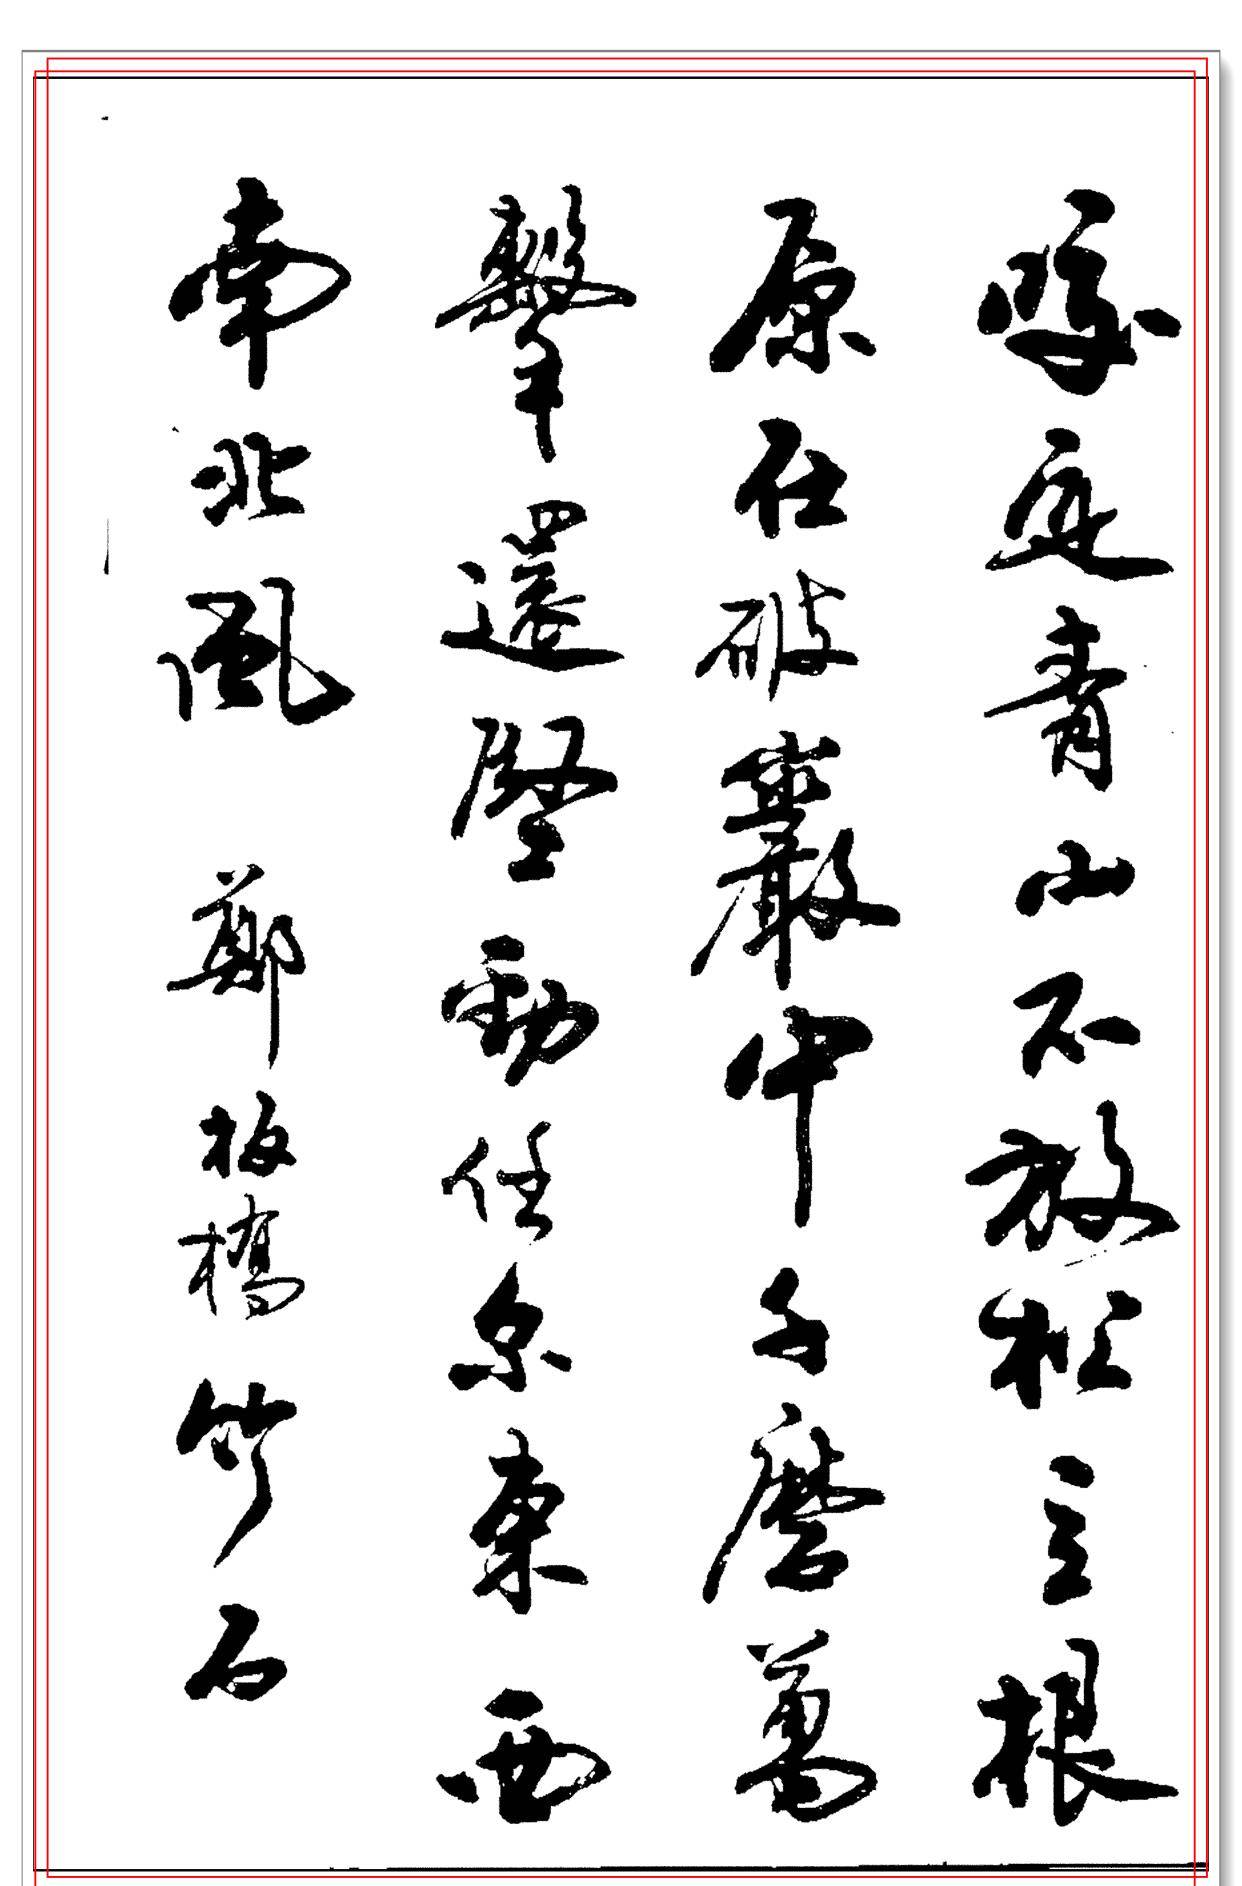 咬定青山不放松立根
原在破巖中千磨萬
擊還堅勁任尔東西
南北風 鄭板橋竹石